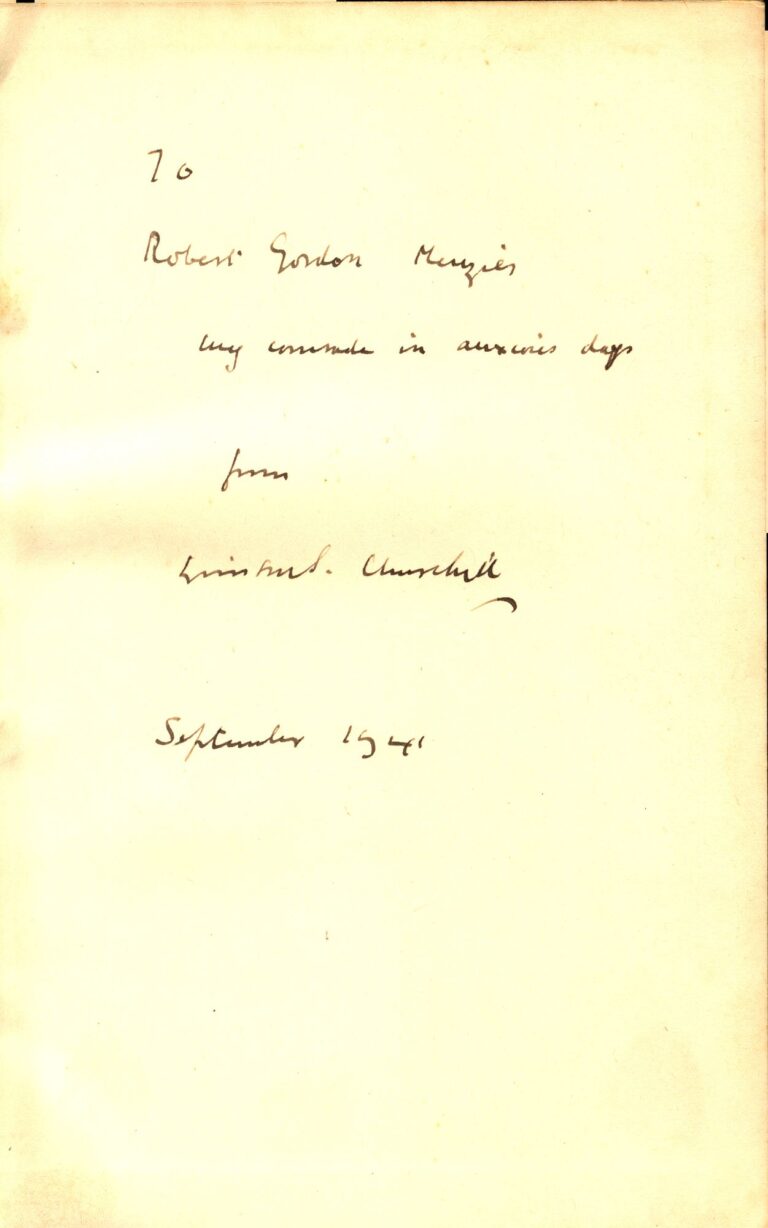 To
Robert Gordon Menzies
my comrade in anxious days
from
Winston S. Churchill
September 1941